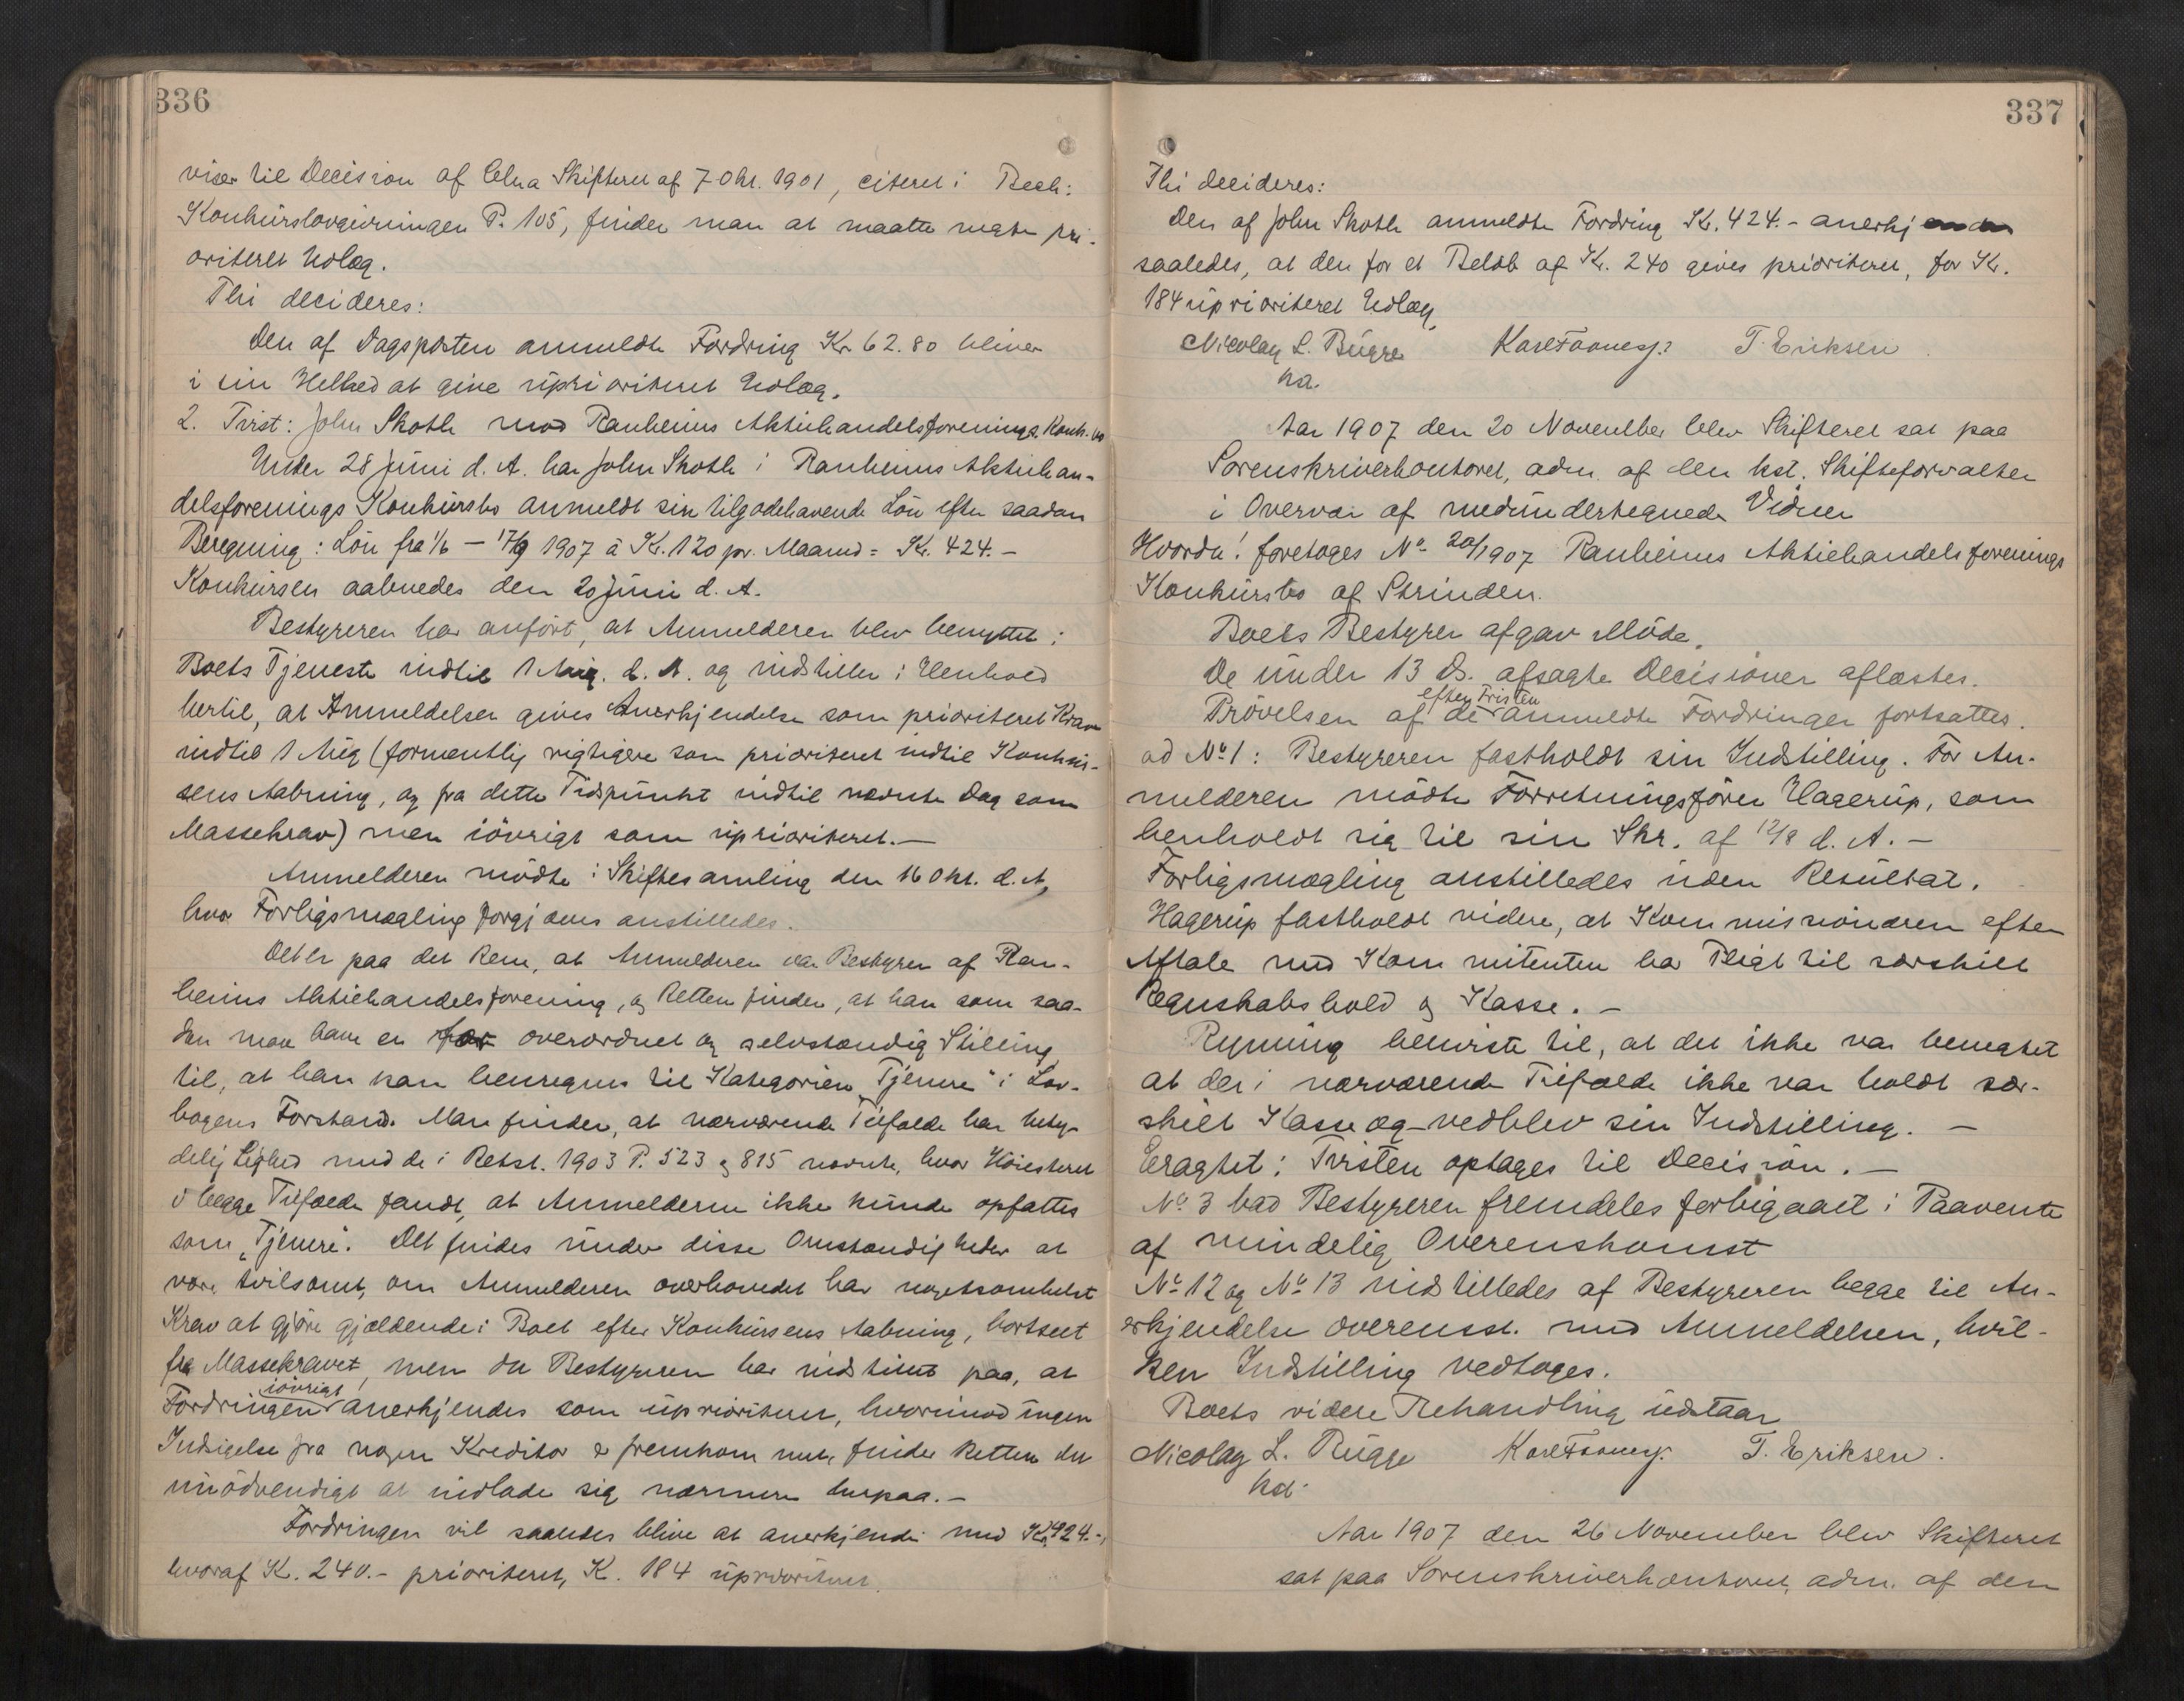 336
viser til Decision af Chra Skifteret af 7 Okt. 1901, citeret i Bech:
Konkurslovgivningen P. 105, finder man at maatte negte pri-
oriteret Udlæg.
Thi decideres:
Den af Dagsposten anmeldte Fordring Kr 62.80 bliver
i sin Helhed at give uprioriteret Udlæg.
2. Tvist: John Skoth mod Ranheims Aktiehandelsforenings Konk.bo
Under 28 Juni d. A. har John Skoth i Ranheims Aktiehan-
delsforenings Konkursbo anmeldt sin tilgodehavende Lön efter saadan
Beregning: Lön fra 1/6 — 17/9 1907 à Kr. 120 pr. Maaned = Kr. 424.-
Konkursen aabnedes den 20 Juni d. A.
Bestyreren har anfört, at Anmelderen blev benyttet i
Boets Tjeneste indtil 1 Aug. d. A. og indstiller i Henhold
hertil, at Anmeldelsen gives Anerkjendelse som prioriteret Krav
indtil 1 Aug (formentlig rigtigere som prioriteret indtil Konkur-
sens Aabning, og fra dette Tidspunkt indtil nævnte Dag som
Massekrav) men iövrigt som uprioriteret.—
Anmelderen mödte i Skiftesamling den 16 Okt. d. A,
hvor Forligsmægling forgjæves anstilledes.
Det er paa det Rene, at Anmelderen var Bestyrer af Ran-
heims Aktiehandelsforening, og Retten finder, at han som saa-
dan maa have en for overordnet og selvstændig Stilling
til, at han kan henregnes til Kategorien „Tjenere" i Lov-
bogens Forstand. Man finder, at nærværende Tilfælde har bety-
delig Lighed med de i Retst. 1903 P. 523 og 815 nævnte, hvor Höiesteret
i begge Tilfælde fandt, at Anmelderen ikke kunde opfattes
som „Tjenere". Det findes under disse Omstændigheder at
være tvilsomt, om Anmelderen overhovedet har nogetsomhelst
Krav at gjöre gjældende i Boet efter Konkursens Aabning, bortseet
fra Massekravet, men da Bestyreren har indstillet paa, at
Fordringen iövrigt anerkjendes som uprioriteret, hvorimod ingen
Indsigelse fra nogen Kreditor er fremkommet, finder Retten det
unödvendigt at indlade sig nærmere herpaa.—
Fordringen vil saaledes blive at anerkjende med Kr. 424.-,
hvoraf Kr. 240.- prioriteret, K. 184 uprioriteret.
337
Thi decideres:
Den af John Skoth anmeldte Fordring Kr. 424.- anerkjendes
saaledes, at den for et Belöb af Kr. 240 gives prioriteret, for Kr.
184 uprioriteret Udlæg,
Nicolay L. Bugge T. Eriksen
kst.
Aar 1907 den 20 November blev Skifteret sat paa
Sorenskriverkontoret, adm. af den kst. Skifteforvalter
i Overvær af medundertegnede Vidner
Hvorda: foretoges No 20/1907 Ranheims Aktiehandelsforenings
Konkursbo af Strinden.
Boets Bestyrer afgav Möde.
De under 13 ds. afsagte Decisioner aflæstes.
Prövelsen af de efter Fristen anmeldte Fordringer fortsattes.
ad No 1: Bestyreren fastholdt sin Indstilling. For An-
melderen mödte Forretningsförer Hagerup, som
henholdt sig til sin Skr. af 12/8 d. A.—
Forligsmægling anstilledes uden Resultat.
Hagerup fastholdt videre, at Kommissionæren efter
Aftale med Kommitenten har Pligt til særskilt
Regnskabshold og Kasse.—
Rynning henviste til, at det ikke var benegtet
at der i nærværende Tilfælde ikke var holdt sær-
skilt Kasse og vedblev sin Indstilling.—
Eragtet: Tvisten optages til Decision.—
No 3 bad Bestyreren fremdeles forbigaaet i Paavente
af mindelig Overenskomst
No 12 og No 13 indstilledes af Bestyreren begge til An-
erkjendelse overensst. med Anmeldelsen, hvil-
ken Indstilling vedtoges.
Boets videre Behandling udstaar
Nicolay L. Bugge T. Eriksen.
kst.
Aar 1907 den 26 November blev Skifteret
sat paa Sorenskriverkontoret, adm. af den